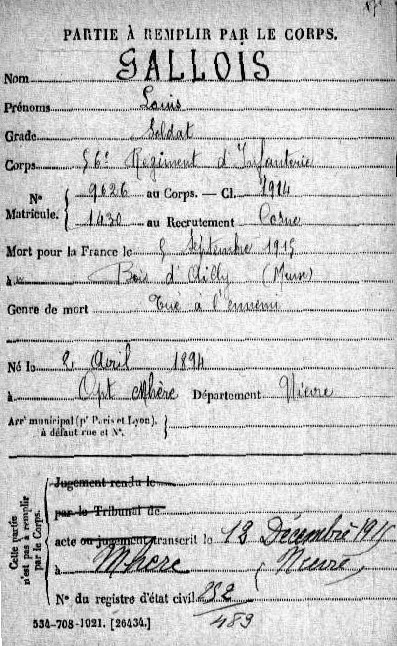 PARTIE À REMPLIR PAR LE CORPS.
Nom GALLOIS
Prénoms Louis
Grade Soldat
Corps 56e Régiment d'Infanterie
No Matricule. { 9626 au Corps. — Cl. 1914
1430 au Recrutement Cosne
Mort pour la France le 5 Septembre 1915
à Bois d'Ailly (Meuse)
Genre de mort Tué à l'ennemi
Né le 2 Avril 1894
à Mhère Département Nièvre
Arrt municipal (pr Paris et Lyon), à défaut rue et No. {
Cette partie n'est pas à remplir par le Corps.
Jugement rendu le
par le Tribunal de
acte ou jugement transcrit le 12 Décembre 1915
à Mhère (Nièvre)
No du registre d'état civil
483
534-708-1921. [26434.]